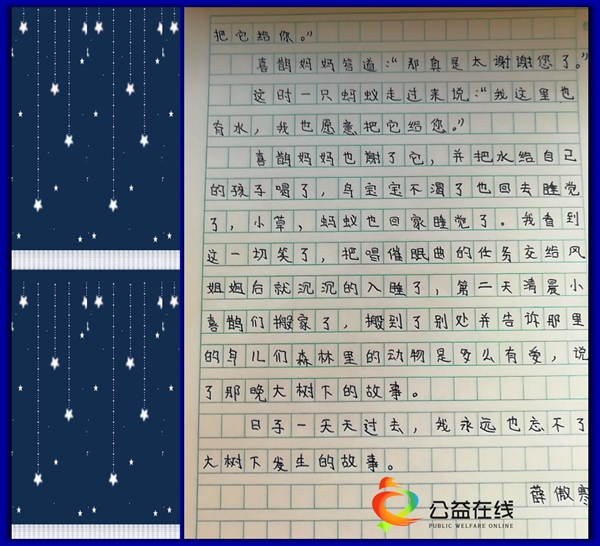 把它给你。”
喜鹊妈妈答道:“那真是太谢谢您了。”
这时一只蚂蚁走过来说:“我这里也
有水,我也愿意把它给您。”
喜鹊妈妈也谢了它,并把水给自己
的孩子喝了,鸟宝宝不渴了也回去睡觉
了,小草,蚂蚁也回家睡觉了。我看到
这一切笑了,把唱催眠曲的任务交给风
姐姐后就沉沉的入睡了,第二天清晨小
喜鹊们搬家了,搬到了别处并告诉那里
的鸟儿们森林里的动物是多么有爱,说
了那晚大树下的故事。
日子一天天过去,我永远也忘不了
大树下发生的故事。
薛傲寒
公益在线
PUBLIC WELFARE ONLINE